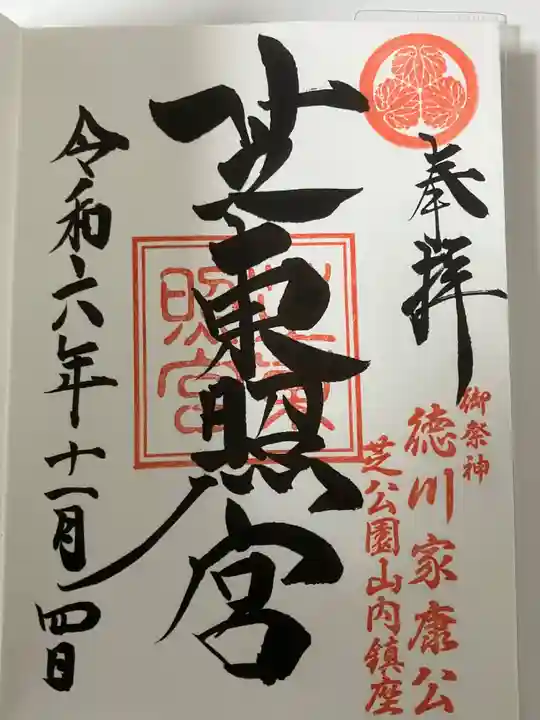 奉拝
御祭神
徳川家康公
芝公園山内鎮座
芝東照宮
芝東
照宮
令和六年十一月四日